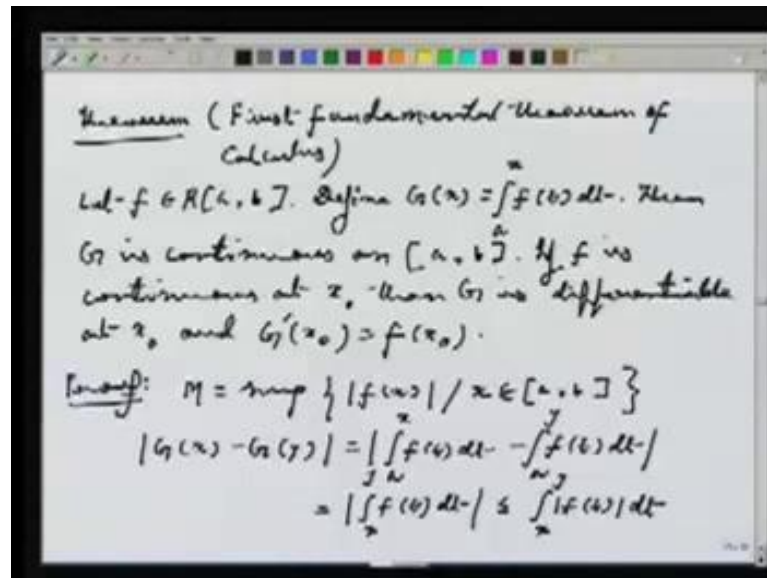 Theorem (First fundamental theorem of
Calculus)
Let f ∈ R[a, b]. Define G(x) = ∫_a^x f(t) dt. Then
G is continuous on [a, b]. If f is
continuous at x_0 then G is differentiable
at x_0 and G'(x_0) = f(x_0).
Proof: M = sup { |f(x)| / x ∈ [a, b] }
|G(x) - G(y)| = | ∫_a^x f(t) dt - ∫_a^y f(t) dt |
= | ∫_x^y f(t) dt | ≤ ∫_x^y |f(t)| dt